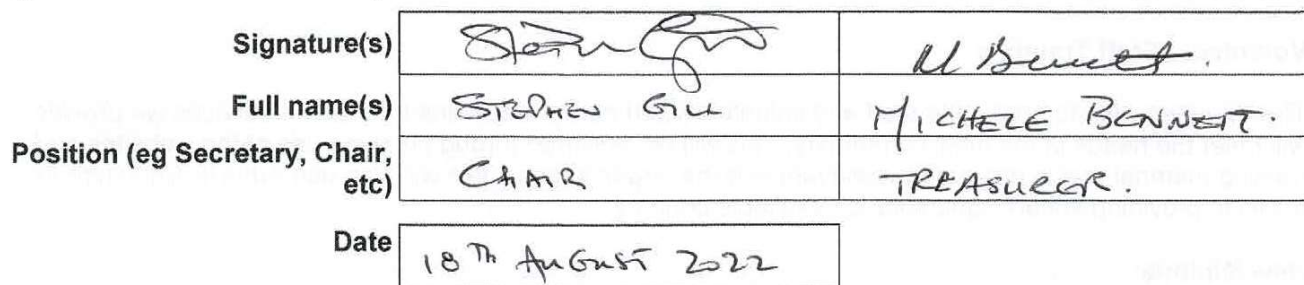 Signature(s) M Bennett.
Full name(s) STEPHEN GILL MICHELE BENNETT.
Position (eg Secretary, Chair,
etc) CHAIR TREASURER.
Date 18TH AUGUST 2022